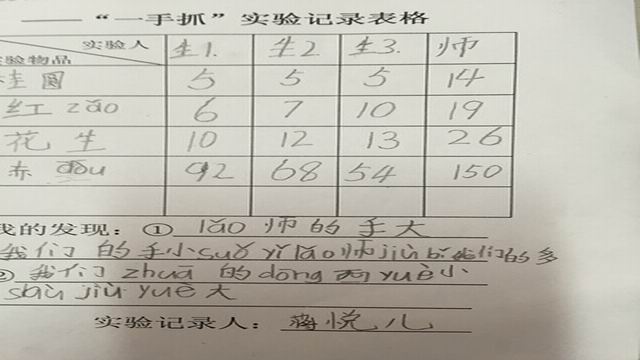 ——“一手抓”实验记录表格
实验人 生1. 生2 生3. 师
实验物品
桂圆 5 5 5 14
红zǎo 6 7 10 19
花生 10 12 13 26
赤dòu 92 68 54 150
我的发现：① lǎo师的手大
我们的手小suǒ yǐ lǎo师jiù bǐ我们的多
② 我们zhuā的dōng西yuè小
shù jiù yuè大
实验记录人：蒋悦儿